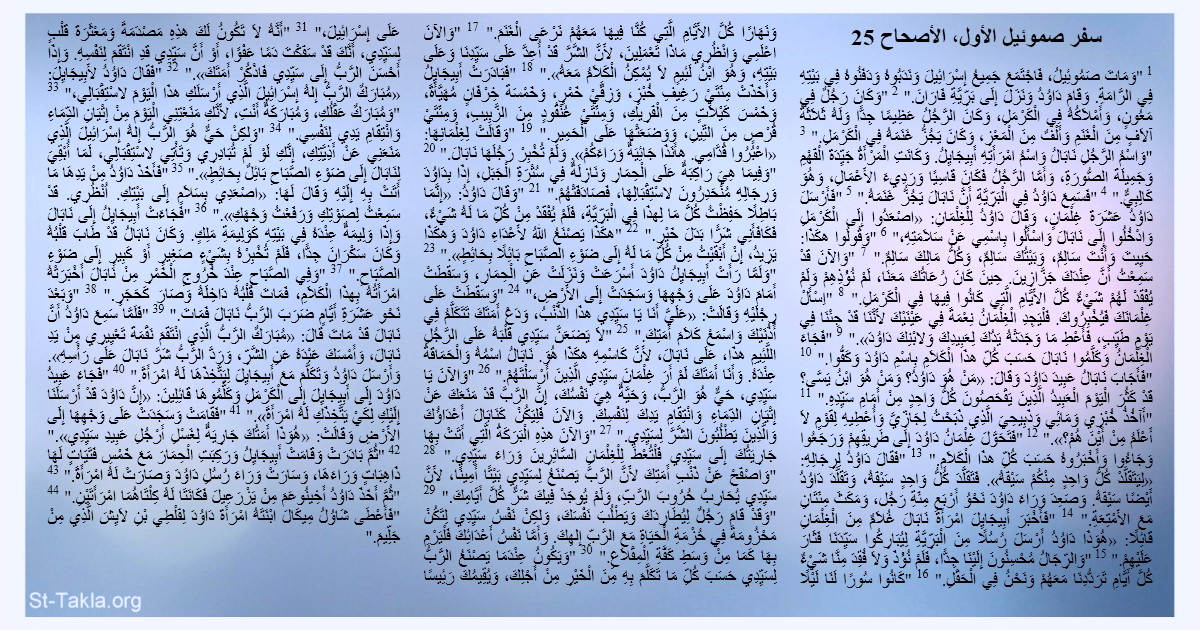 سفر صموئيل الأول، الأصحاح 25
1 "وَمَاتَ صَمُوئِيلُ، فَاجْتَمَعَ جَمِيعُ إِسْرَائِيلَ وَنَدَبُوهُ وَدَفَنُوهُ فِي بَيْتِهِ
فِي الرَّامَةِ. وَقَامَ دَاوُدُ وَنَزَلَ إِلَى بَرِّيَّةِ فَارَانَ." 2 "وَكَانَ رَجُلٌ فِي
مَعُونٍ، وَأَمْلاَكُهُ فِي الْكَرْمَلِ، وَكَانَ الرَّجُلُ عَظِيمًا جِدًّا وَلَهُ ثَلاَثَةُ
آلاَفٍ مِنَ الْغَنَمِ وَأَلْفٌ مِنَ الْمَعْزِ، وَكَانَ يَجُزُّ غَنَمَهُ فِي الْكَرْمَلِ." 3
"وَاسْمُ الرَّجُلِ نَابَالُ وَاسْمُ امْرَأَتِهِ أَبِيجَايِلُ. وَكَانَتِ الْمَرْأَةُ جَيِّدَةَ الْفَهْمِ
وَجَمِيلَةَ الصُّورَةِ، وَأَمَّا الرَّجُلُ فَكَانَ قَاسِيًا وَرَدِيءَ الأَعْمَالِ، وَهُوَ
كَالِبِيٌّ." 4 "فَسَمِعَ دَاوُدُ فِي الْبَرِّيَّةِ أَنَّ نَابَالَ يَجُزُّ غَنَمَهُ." 5 "فَأَرْسَلَ
دَاوُدُ عَشَرَةَ غِلْمَانٍ، وَقَالَ دَاوُدُ لِلْغِلْمَانِ: «اصْعَدُوا إِلَى الْكَرْمَلِ
وَادْخُلُوا إِلَى نَابَالَ وَاسْأَلُوا بِاسْمِي عَنْ سَلاَمَتِهِ،" 6 "وَقُولُوا هكَذَا:
حَيِيتَ وَأَنْتَ سَالِمٌ، وَبَيْتُكَ سَالِمٌ، وَكُلُّ مَالِكَ سَالِمٌ." 7 "وَالآنَ قَدْ
سَمِعْتُ أَنَّ عِنْدَكَ جَزَّازِينَ. حِينَ كَانَ رُعَاتُكَ مَعَنَا، لَمْ نُؤْذِهِمْ وَلَمْ
يُفْقَدْ لَهُمْ شَيْءٌ كُلَّ الأَيَّامِ الَّتِي كَانُوا فِيهَا فِي الْكَرْمَلِ." 8 "اِسْأَلْ
غِلْمَانَكَ فَيُخْبِرُوكَ. فَلْيَجِدِ الْغِلْمَانُ نِعْمَةً فِي عَيْنَيْكَ لأَنَّنَا قَدْ جِئْنَا فِي
يَوْمٍ طَيِّبٍ، فَأَعْطِ مَا وَجَدَتْهُ يَدُكَ لِعَبِيدِكَ وَلابْنِكَ دَاوُدَ»." 9 "فَجَاءَ
الْغِلْمَانُ وَكَلَّمُوا نَابَالَ حَسَبَ كُلِّ هذَا الْكَلاَمِ بِاسْمِ دَاوُدَ وَكَفُّوا." 10
"فَأَجَابَ نَابَالُ عَبِيدَ دَاوُدَ وَقَالَ: «مَنْ هُوَ دَاوُدُ؟ وَمَنْ هُوَ ابْنُ يَسَّى؟
قَدْ كَثُرَ الْيَوْمَ الْعَبِيدُ الَّذِينَ يَقْحَصُونَ كُلُّ وَاحِدٍ مِنْ أَمَامِ سَيِّدِهِ." 11
"أَآخُذُ خُبْزِي وَمَائِي وَذَبِيحِيَ الَّذِي ذَبَحْتُ لِجَازِّيَّ وَأُعْطِيهِ لِقَوْمٍ لاَ
أَعْلَمُ مِنْ أَيْنَ هُمْ؟»." 12 "فَتَحَوَّلَ غِلْمَانُ دَاوُدَ إِلَى طَرِيقِهِمْ وَرَجَعُوا
وَجَاءُوا وَأَخْبَرُوهُ حَسَبَ كُلِّ هذَا الْكَلاَمِ." 13 "فَقَالَ دَاوُدُ لِرِجَالِهِ:
«لِيَتَقَلَّدْ كُلُّ وَاحِدٍ مِنْكُمْ سَيْفَهُ». فَتَقَلَّدَ كُلُّ وَاحِدٍ سَيْفَهُ، وَتَقَلَّدَ دَاوُدُ
أَيْضًا سَيْفَهُ. وَصَعِدَ وَرَاءَ دَاوُدَ نَحْوُ أَرْبَعِ مِئَةِ رَجُل، وَمَكَثَ مِئَتَانِ
مَعَ الأَمْتِعَةِ." 14 "فَأَخْبَرَ أَبِيجَايِلَ امْرَأَةَ نَابَالَ غُلاَمٌ مِنَ الْغِلْمَانِ
قَائِلاً: «هُوَذَا دَاوُدُ أَرْسَلَ رُسُلاً مِنَ الْبَرِّيَّةِ لِيُبَارِكُوا سَيِّدَنَا فَثَارَ
عَلَيْهِمْ." 15 "وَالرِّجَالُ مُحْسِنُونَ إِلَيْنَا جِدًّا، فَلَمْ نُؤْذَ وَلاَ فُقِدَ مِنَّا شَيْءٌ
كُلَّ أَيَّامِ تَرَدُّدِنَا مَعَهُمْ وَنَحْنُ فِي الْحَقْلِ." 16 "كَانُوا سُورًا لَنَا لَيْلاً
وَنَهَارًا كُلَّ الأَيَّامِ الَّتِي كُنَّا فِيهَا مَعَهُمْ نَرْعَى الْغَنَمَ." 17 "وَالآنَ
اعْلَمِي وَانْظُرِي مَاذَا تَعْمَلِينَ، لأَنَّ الشَّرَّ قَدْ أُعِدَّ عَلَى سَيِّدِنَا وَعَلَى
بَيْتِهِ، وَهُوَ ابْنُ لَئِيمٍ لاَ يُمْكِنُ الْكَلاَمُ مَعَهُ»." 18 "فَبَادَرَتْ أَبِيجَايِلُ
وَأَخَذَتْ مِئَتَيْ رَغِيفِ خُبْزٍ، وَزِقَّيْ خَمْرٍ، وَخَمْسَةَ خِرْفَانٍ مُهَيَّأَةً،
وَخَمْسَ كَيْلاَتٍ مِنَ الْفَرِيكِ، وَمِئَتَيْ عُنْقُودٍ مِنَ الزَّبِيبِ، وَمِئَتَيْ
قُرْصٍ مِنَ التِّينِ، وَوَضَعَتْهَا عَلَى الْحَمِيرِ." 19 "وَقَالَتْ لِغِلْمَانِهَا:
«اعْبُرُوا قُدَّامِي. هأَنَذَا جَائِيَةٌ وَرَاءَكُمْ». وَلَمْ تُخْبِرْ رَجُلَهَا نَابَالَ." 20
"وَفِيمَا هِيَ رَاكِبَةٌ عَلَى الْحِمَارِ وَنَازِلَةٌ فِي سُتْرَةِ الْجَبَلِ، إِذَا بِدَاوُدَ
وَرِجَالِهِ مُنْحَدِرُونَ لاسْتِقْبَالِهَا، فَصَادَفَتْهُمْ." 21 "وَقَالَ دَاوُدُ: «إِنَّمَا
بَاطِلاً حَفِظْتُ كُلَّ مَا لِهذَا فِي الْبَرِّيَّةِ، فَلَمْ يُفْقَدْ مِنْ كُلِّ مَا لَهُ شَيْءٌ،
فَكَافَأَنِي شَرًّا بَدَلَ خَيْرٍ." 22 "هكَذَا يَصْنَعُ اللهُ لأَعْدَاءِ دَاوُدَ وَهكَذَا
يَزِيدُ، إِنْ أَبْقَيْتُ مِنْ كُلِّ مَا لَهُ إِلَى ضَوْءِ الصَّبَاحِ بَائِلاً بِحَائِطٍ»." 23
"وَلَمَّا رَأَتْ أَبِيجَايِلُ دَاوُدَ أَسْرَعَتْ وَنَزَلَتْ عَنِ الْحِمَارِ، وَسَقَطَتْ
أَمَامَ دَاوُدَ عَلَى وَجْهِهَا وَسَجَدَتْ إِلَى الأَرْضِ،" 24 "وَسَقَطَتْ عَلَى
رِجْلَيْهِ وَقَالَتْ: «عَلَيَّ أَنَا يَا سَيِّدِي هذَا الذَّنْبُ، وَدَعْ أَمَتَكَ تَتَكَلَّمُ فِي
أُذُنَيْكَ وَاسْمَعْ كَلاَمَ أَمَتِكَ." 25 "لاَ يَضَعَنَّ سَيِّدِي قَلْبَهُ عَلَى الرَّجُلِ
اللَّئِيمِ هذَا، عَلَى نَابَالَ، لأَنَّ كَاسْمِهِ هكَذَا هُوَ. نَابَالُ اسْمُهُ وَالْحَمَاقَةُ
عِنْدَهُ. وَأَنَا أَمَتَكَ لَمْ أَرَ غِلْمَانَ سَيِّدِي الَّذِينَ أَرْسَلْتَهُمْ." 26 "وَالآنَ يَا
سَيِّدِي، حَيٌّ هُوَ الرَّبُّ، وَحَيَّةٌ هِيَ نَفْسُكَ، إِنَّ الرَّبَّ قَدْ مَنَعَكَ عَنْ
إِتْيَانِ الدِّمَاءِ وَانْتِقَامِ يَدِكَ لِنَفْسِكَ. وَالآنَ فَلْيَكُنْ كَنَابَالَ أَعْدَاؤُكَ
وَالَّذِينَ يَطْلُبُونَ الشَّرَّ لِسَيِّدِي." 27 "وَالآنَ هذِهِ الْبَرَكَةُ الَّتِي أَتَتْ بِهَا
جَارِيَتُكَ إِلَى سَيِّدِي فَلْتُعْطَ لِلْغِلْمَانِ السَّائِرِينَ وَرَاءَ سَيِّدِي." 28
"وَاصْفَحْ عَنْ ذَنْبِ أَمَتِكَ لأَنَّ الرَّبَّ يَصْنَعُ لِسَيِّدِي بَيْتًا أَمِينًا، لأَنَّ
سَيِّدِي يُحَارِبُ حُرُوبَ الرَّبِّ، وَلَمْ يُوجَدْ فِيكَ شَرٌّ كُلَّ أَيَّامِكَ." 29
"وَقَدْ قَامَ رَجُلٌ لِيُطَارِدَكَ وَيَطْلُبَ نَفْسَكَ، وَلكِنْ نَفْسُ سَيِّدِي لِتَكُنْ
مَحْزُومَةً فِي حُزْمَةِ الْحَيَاةِ مَعَ الرَّبِّ إِلهِكَ. وَأَمَّا نَفْسُ أَعْدَائِكَ فَلْيَرْمِ
بِهَا كَمَا مِنْ وَسَطِ كَفَّةِ الْمِقْلاَعِ." 30 "وَيَكُونُ عِنْدَمَا يَصْنَعُ الرَّبُّ
لِسَيِّدِي حَسَبَ كُلِّ مَا تَكَلَّمَ بِهِ مِنَ الْخَيْرِ مِنْ أَجْلِكَ، وَيُقِيمُكَ رَئِيسًا
عَلَى إِسْرَائِيلَ،" 31 "أَنَّهُ لاَ تَكُونُ لَكَ هذِهِ مَصْدَمَةً وَمَعْثَرَةَ قَلْبٍ
لِسَيِّدِي، أَنَّكَ قَدْ سَفَكْتَ دَمًا عَفْوًا، أَوْ أَنَّ سَيِّدِي قَدِ انْتَقَمَ لِنَفْسِهِ. وَإِذَا
أَحْسَنَ الرَّبُّ إِلَى سَيِّدِي فَاذْكُرْ أَمَتَكَ»." 32 "فَقَالَ دَاوُدُ لأَبِيجَايِلَ:
«مُبَارَكٌ الرَّبُّ إِلهُ إِسْرَائِيلَ الَّذِي أَرْسَلَكِ هذَا الْيَوْمَ لاسْتِقْبَالِي،" 33
"وَمُبَارَكٌ عَقْلُكِ، وَمُبَارَكَةٌ أَنْتِ، لأَنَّكِ مَنَعْتِنِي الْيَوْمَ مِنْ إِتْيَانِ الدِّمَاءِ
وَانْتِقَامِ يَدِي لِنَفْسِي." 34 "وَلكِنْ حَيٌّ هُوَ الرَّبُّ إِلهُ إِسْرَائِيلَ الَّذِي
مَنَعَنِي عَنْ أَذِيَّتِكِ، إِنَّكِ لَوْ لَمْ تُبَادِرِي وَتَأْتِي لاسْتِقْبَالِي، لَمَا أُبْقِيَ
لِنَابَالَ إِلَى ضَوْءِ الصَّبَاحِ بَائِلٌ بِحَائِطٍ»." 35 "فَأَخَذَ دَاوُدُ مِنْ يَدِهَا مَا
أَتَتْ بِهِ إِلَيْهِ وَقَالَ لَهَا: «اصْعَدِي بِسَلاَمٍ إِلَى بَيْتِكِ. اُنْظُرِي. قَدْ
سَمِعْتُ لِصَوْتِكِ وَرَفَعْتُ وَجْهَكِ»." 36 "فَجَاءَتْ أَبِيجَايِلُ إِلَى نَابَالَ
وَإِذَا وَلِيمَةٌ عِنْدَهُ فِي بَيْتِهِ كَوَلِيمَةِ مَلِكٍ. وَكَانَ نَابَالُ قَدْ طَابَ قَلْبُهُ
وَكَانَ سَكْرَانَ جِدًّا، فَلَمْ تُخْبِرْهُ بِشَيْءٍ صَغِيرٍ أَوْ كَبِيرٍ إِلَى ضَوْءِ
الصَّبَاحِ." 37 "وَفِي الصَّبَاحِ عِنْدَ خُرُوجِ الْخَمْرِ مِنْ نَابَالَ أَخْبَرَتْهُ
امْرَأَتُهُ بِهذَا الْكَلاَمِ، فَمَاتَ قَلْبُهُ دَاخِلَهُ وَصَارَ كَحَجَرٍ." 38 "وَبَعْدَ
نَحْوِ عَشَرَةِ أَيَّامٍ ضَرَبَ الرَّبُّ نَابَالَ فَمَاتَ." 39 "فَلَمَّا سَمِعَ دَاوُدُ أَنَّ
نَابَالَ قَدْ مَاتَ قَالَ: «مُبَارَكٌ الرَّبُّ الَّذِي انْتَقَمَ نَقْمَةَ تَعْيِيرِي مِنْ يَدِ
نَابَالَ، وَأَمْسَكَ عَبْدَهُ عَنِ الشَّرِّ، وَرَدَّ الرَّبُّ شَرَّ نَابَالَ عَلَى رَأْسِهِ».
وَأَرْسَلَ دَاوُدُ وَتَكَلَّمَ مَعَ أَبِيجَايِلَ لِيَتَّخِذَهَا لَهُ امْرَأَةً." 40 "فَجَاءَ عَبِيدُ
دَاوُدَ إِلَى أَبِيجَايِلَ إِلَى الْكَرْمَلِ وَكَلَّمُوهَا قَائِلِينَ: «إِنَّ دَاوُدَ قَدْ أَرْسَلَنَا
إِلَيْكِ لِكَيْ يَتَّخِذَكِ لَهُ امْرَأَةً»." 41 "فَقَامَتْ وَسَجَدَتْ عَلَى وَجْهِهَا إِلَى
الأَرْضِ وَقَالَتْ: «هُوَذَا أَمَتُكَ جَارِيَةٌ لِغَسْلِ أَرْجُلِ عَبِيدِ سَيِّدِي»."
42 "ثُمَّ بَادَرَتْ وَقَامَتْ أَبِيجَايِلُ وَرَكِبَتِ الْحِمَارَ مَعَ خَمْسِ فَتَيَاتٍ لَهَا
ذَاهِبَاتٍ وَرَاءَهَا، وَسَارَتْ وَرَاءَ رُسُلِ دَاوُدَ وَصَارَتْ لَهُ امْرَأَةً." 43
"ثُمَّ أَخَذَ دَاوُدُ أَخِينُوعَمَ مِنْ يَزْرَعِيلَ فَكَانَتَا لَهُ كِلْتَاهُمَا امْرَأَتَيْنِ." 44
"فَأَعْطَى شَاوُلُ مِيكَالَ ابْنَتَهُ امْرَأَةَ دَاوُدَ لِفَلْطِي بْنِ لاَيِشَ الَّذِي مِنْ
جَلِّيمَ."
St-Takla.org